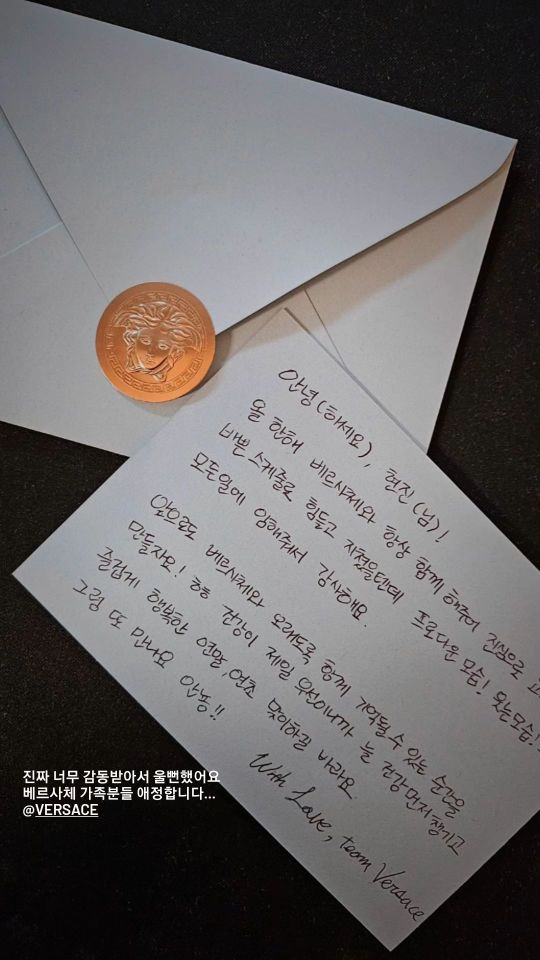 안녕(하세요), 현진(님)!
올 한해 베르사체와 항상 함께 해주어 진심으로
바쁜 스케줄로 힘들고 지쳤을텐데 프로다운 모습! 웃는모습!
모든일에 임해줘서 감사해요.
앞으로도 베르사체와 오래도록 함께 기억될 수 있는 순간을
만들자요! 항상 건강이 제일 우선이니까 늘 건강 먼저 챙기고
즐겁게 행복한 연말, 연초 맞이하길 바라요.
그럼 또 만나요 안뇽!!
With Love, team Versace
진짜 너무 감동받아서 울뻔했어요
베르사체 가족분들 애정합니다...
@VERSACE